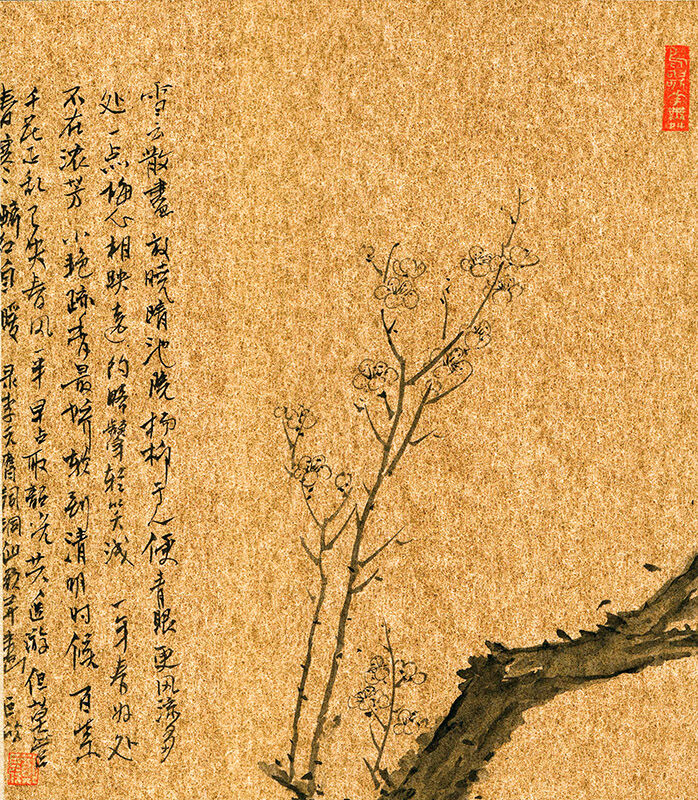 雪云散盡放晓晴池院杨柳于人便青眼更风流多
处一点梅心相映远约畧颦轻笑浅一年春好处
不在浓芳小艳疏香最娇软到清明时候百紫
千花正乱已失春风一半早占取韶光共追游但莫管
春寒醉红自暖录李元膺词洞仙歌并画